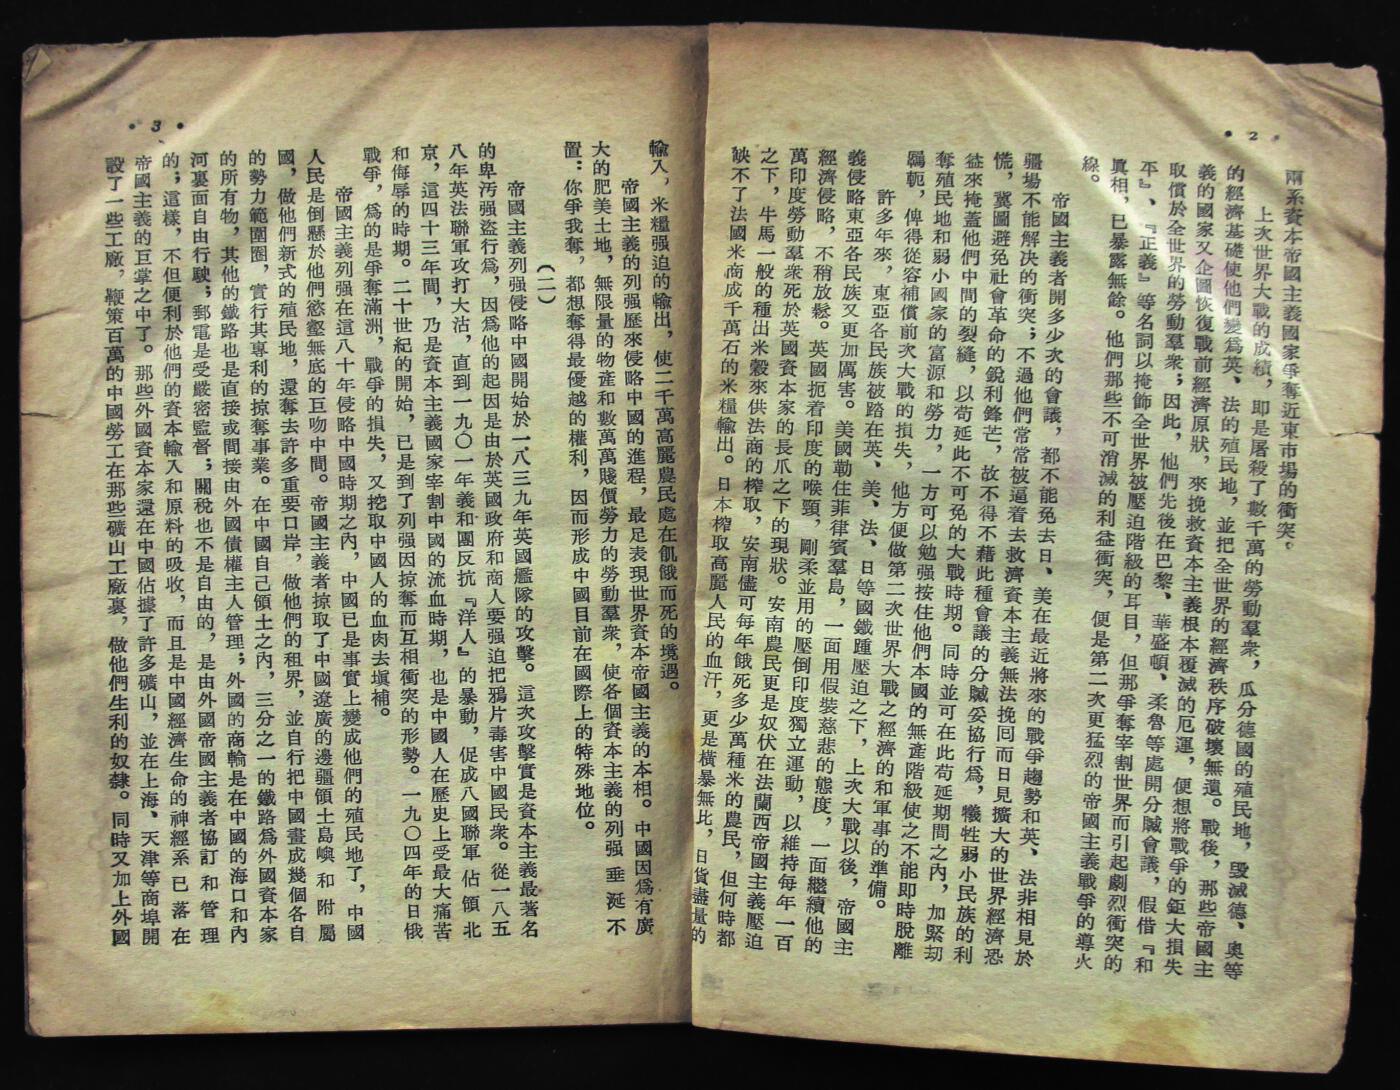 • 2 •
兩系資本帝國主義國家爭奪近東市場的衝突。
上次世界大戰的成績，即是屠殺了數千萬的勞動羣衆，瓜分德國的殖民地，毀滅德、奧等
的經濟基礎使他們變爲英、法的殖民地，並把全世界的經濟秩序破壞無遺。戰後，那些帝國主
義的國家又企圖恢復戰前經濟原狀，來挽救資本主義根本覆滅的厄運，便想將戰爭的鉅大損失
取償於全世界的勞動羣衆；因此，他們先後在巴黎、華盛頓、柔魯等處開分贓會議，假借『和
平』、『正義』等名詞以掩飾全世界被壓迫階級的耳目，但那爭奪宰割世界而引起劇烈衝突的
眞相，已暴露無餘。他們那些不可消滅的利益衝突，便是第二次更猛烈的帝國主義戰爭的導火
線。
帝國主義者開多少次的會議，都不能免去日、美在最近將來的戰爭趨勢和英、法非相見於
疆場不能解決的衝突；不過他們常常被逼着去救濟資本主義無法挽囘而日見擴大的世界經濟恐
慌，冀圖避免社會革命的銳利鋒芒，故不得不藉此種會議的分贓妥協行爲，犧牲弱小民族的利
益來掩蓋他們中間的裂縫，以苟延此不可免的大戰時期。同時並可在此苟延期間之內，加緊刧
奪殖民地和弱小國家的富源和勞力，一方可以勉强按住他們本國的無產階級使之不能卽時脫離
羈軛，俾得從容補償前次大戰的損失，他方便做第二次世界大戰之經濟的和軍事的準備。
許多年來，東亞各民族被踏在英、美、法、日等國鐵踵壓迫之下，上次大戰以後，帝國主
義侵略東亞各民族又更加厲害。美國勒住菲律賓羣島，一面用假裝慈悲的態度，一面繼續他的
經濟侵略，不稍放鬆。英國扼着印度的喉頸，剛柔並用的壓倒印度獨立運動，以維持每年一百
萬印度勞動羣衆死於英國資本家的長爪之下的現狀。安南農民更是奴伏在法蘭西帝國主義壓迫
之下，牛馬一般的種出米穀來供法商的榨取，安南儘可每年餓死多少萬種米的農民，但何時都
缺不了法國米商成千萬石的米糧輸出。日本榨取高麗人民的血汗，更是橫暴無比，日貨盡量的
• 3 •
輸入，米糧强迫的輸出，使二千萬高麗農民處在飢餓而死的境遇。
帝國主義的列强歷來侵略中國的進程，最足表現世界資本帝國主義的本相。中國因爲有廣
大的肥美土地，無限量的物產和數萬萬賤價勞力的勞動羣衆，使各個資本主義的列强垂涎不
置：你爭我奪，都想奪得最優越的權利，因而形成中國目前在國際上的特殊地位。
（二）
帝國主義列强侵略中國開始於一八三九年英國艦隊的攻擊。這次攻擊實是資本主義最著名
的卑汚强盜行爲，因爲他的起因是由於英國政府和商人要强迫把鴉片毒害中國民衆。從一八五
八年英法聯軍攻打大沽，直到一九〇一年義和團反抗『洋人』的暴動，促成八國聯軍佔領北
京，這四十三年間，乃是資本主義國家宰割中國的流血時期，也是中國人在歷史上受最大痛苦
和侮辱的時期。二十世紀的開始，已是到了列强因掠奪而互相衝突的形勢。一九〇四年的日俄
戰爭，爲的是爭奪滿洲，戰爭的損失，又挖取中國人的血肉去塡補。
帝國主義列强在這八十年侵略中國時期之內，中國已是事實上變成他們的殖民地了，中國
人民是倒懸於他們慾壑無底的巨吻中間。帝國主義者掠取了中國遼廣的邊疆領土島嶼和附屬
國，做他們新式的殖民地，還奪去許多重要口岸，做他們的租界，並自行把中國畫成幾個各自
的勢力範圍圈，實行其專利的掠奪事業。在中國自己領土之內，三分之一的鐵路爲外國資本家
的所有物，其他的鐵路也是直接或間接由外國債權主人管理；外國的商輪是在中國的海口和內
河裏面自由行駛；郵電是受嚴密監督；關稅也不是自由的，是由外國帝國主義者協訂和管理
的；這樣，不但便利於他們的資本輸入和原料的吸收，而且是中國經濟生命的神經系已落在
帝國主義的巨掌之中了。那些外國資本家還在中國佔據了許多礦山，並在上海、天津等商埠開
設了一些工廠，鞭策百萬的中國勞工在那些礦山工廠裏，做他們生利的奴隸。同時又加上外國